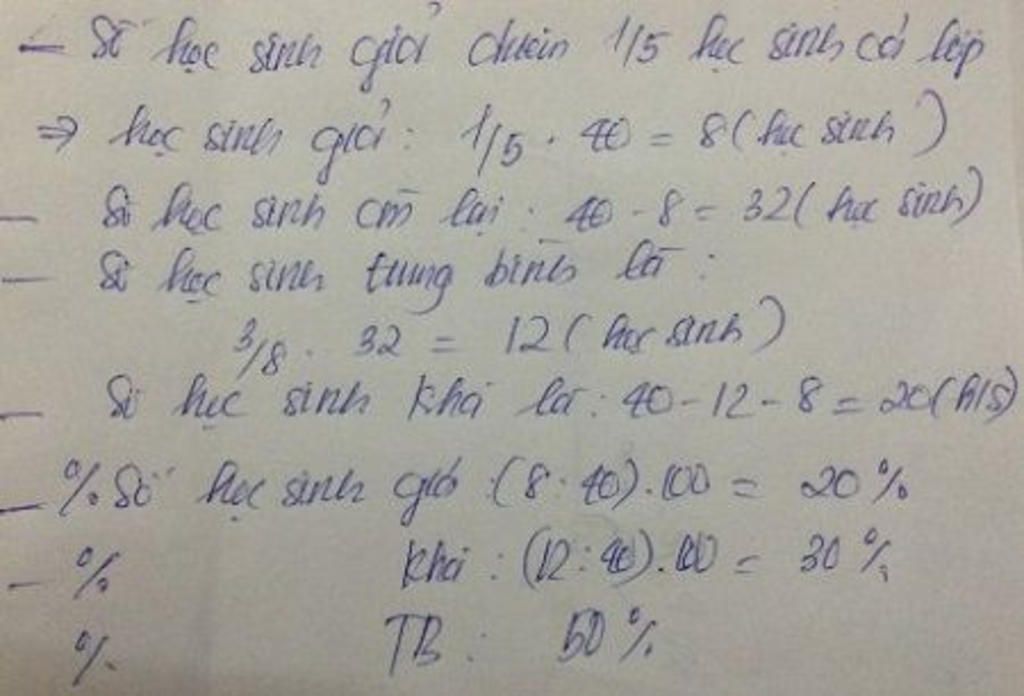 - Số học sinh giỏi chiếm 1/5 học sinh cả lớp
=> học sinh giỏi: 1/5 . 40 = 8 (học sinh)
- Số học sinh còn lại: 40 - 8 = 32 (học sinh)
- Số học sinh trung bình là:
3/8 . 32 = 12 (học sinh)
- Số học sinh khá là: 40 - 12 - 8 = 20 (h/s)
- % Số học sinh giỏi: (8 : 40) . 100 = 20%
- % khá: (12 : 40) . 100 = 30%
% TB: 50%